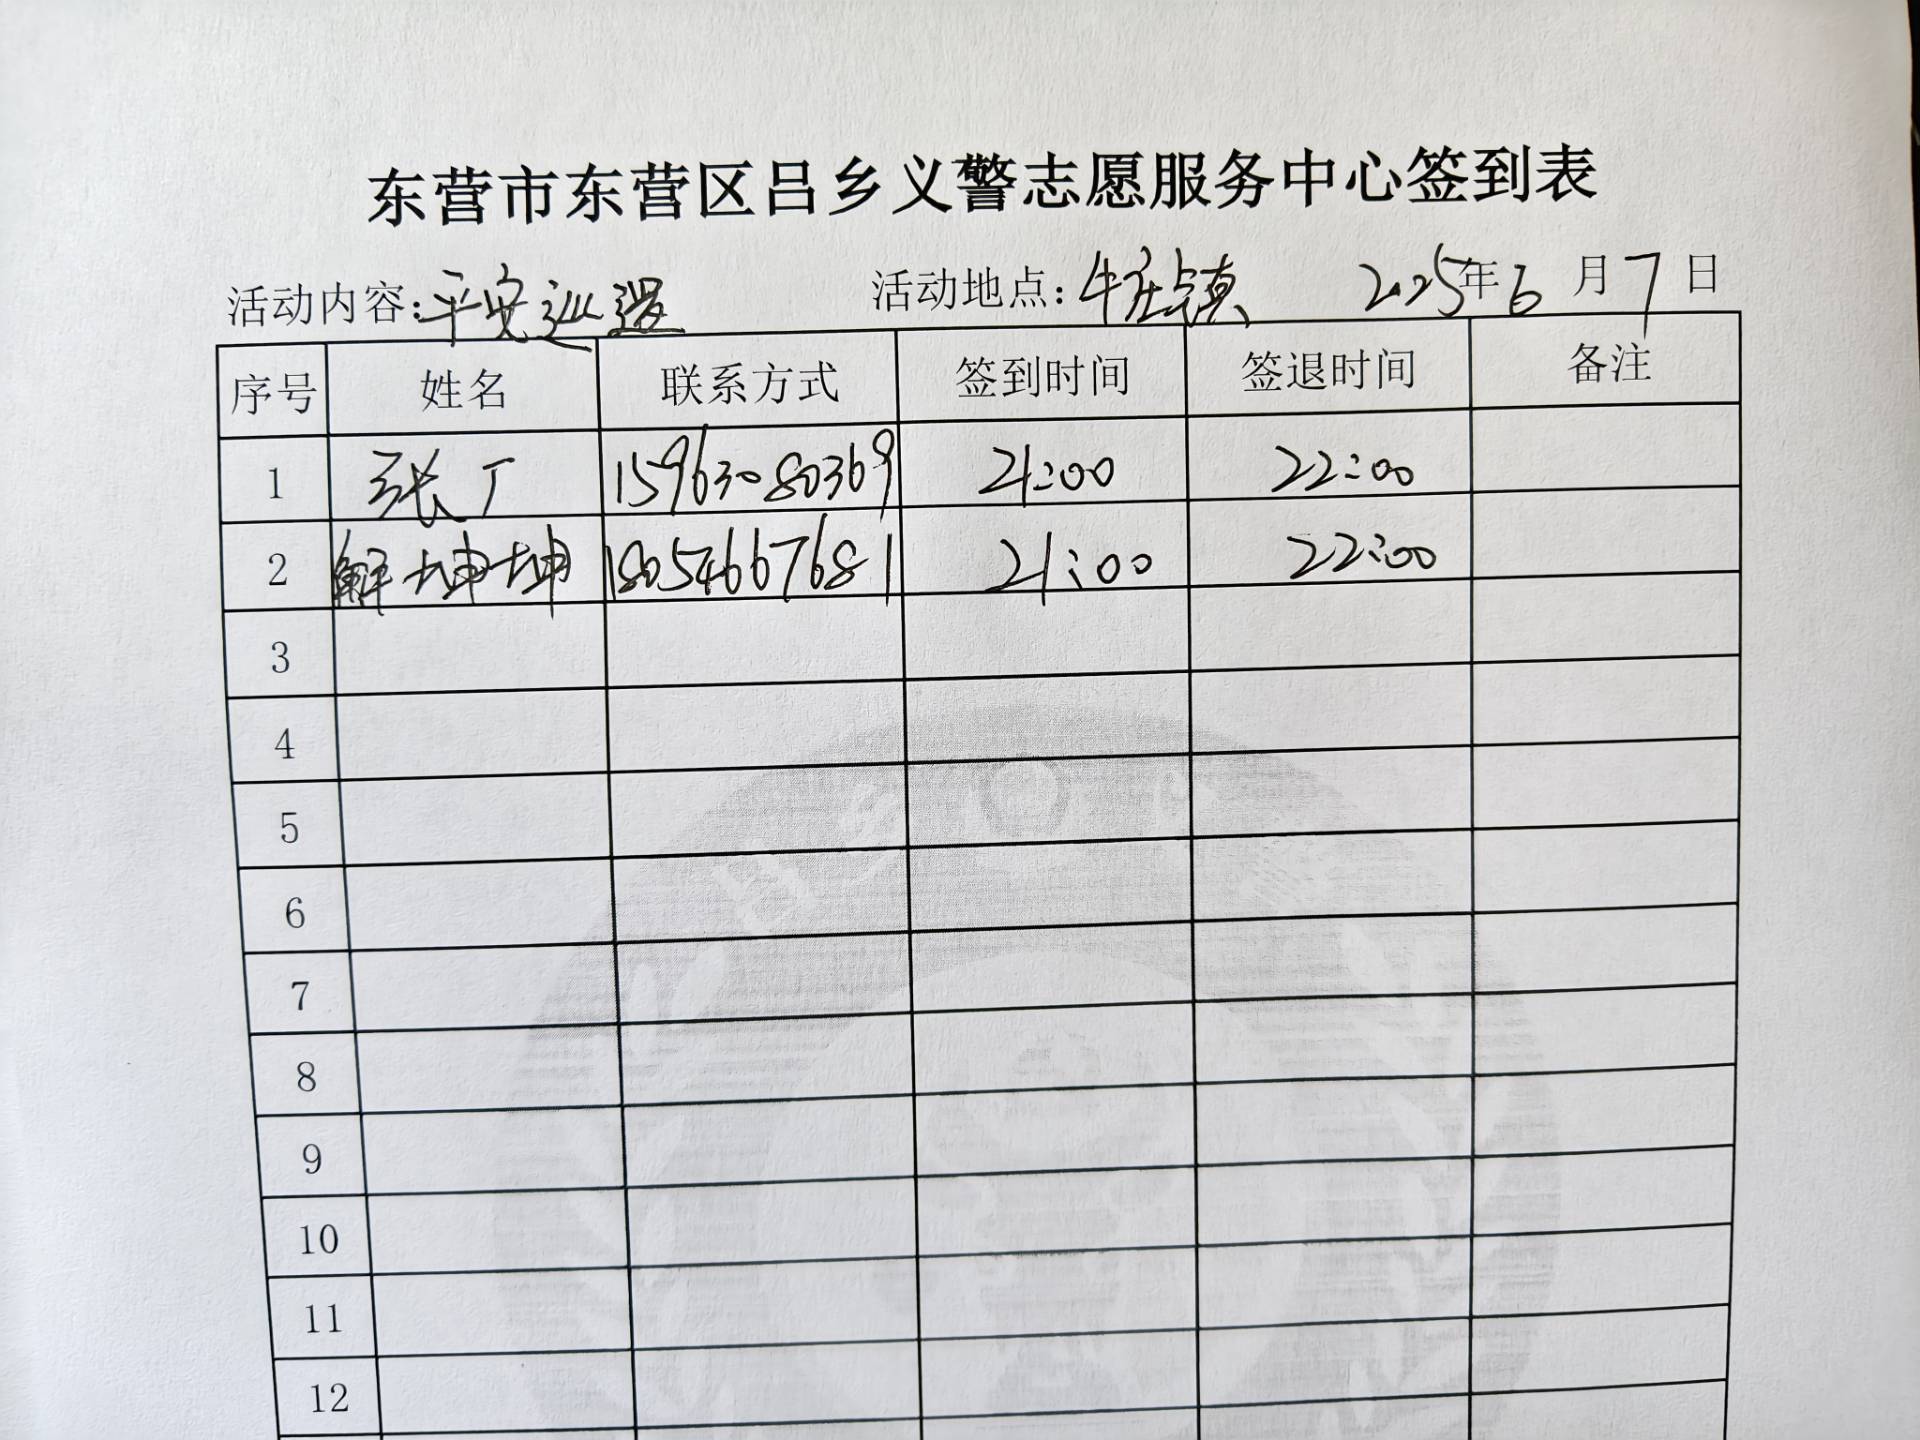 东营市东营区吕乡义警志愿服务中心签到表
活动内容:平安巡逻 活动地点:牛庄镇 2025年6月7日
序号 姓名 联系方式 签到时间 签退时间 备注
1 张丁 15963080369 21:00 22:00
2 解坤坤 18054667681 21:00 22:00
3
4
5
6
7
8
9
10
11
12